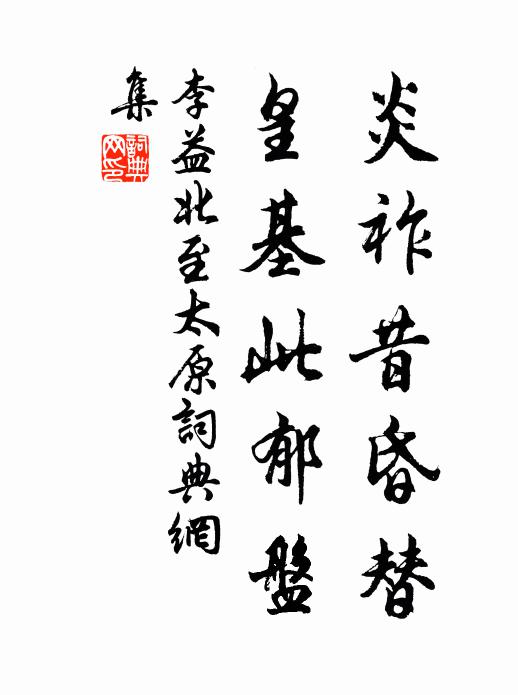 炎祚昔昏替
皇基此郁盤
李益北至太原詞典網
集
詞典網印